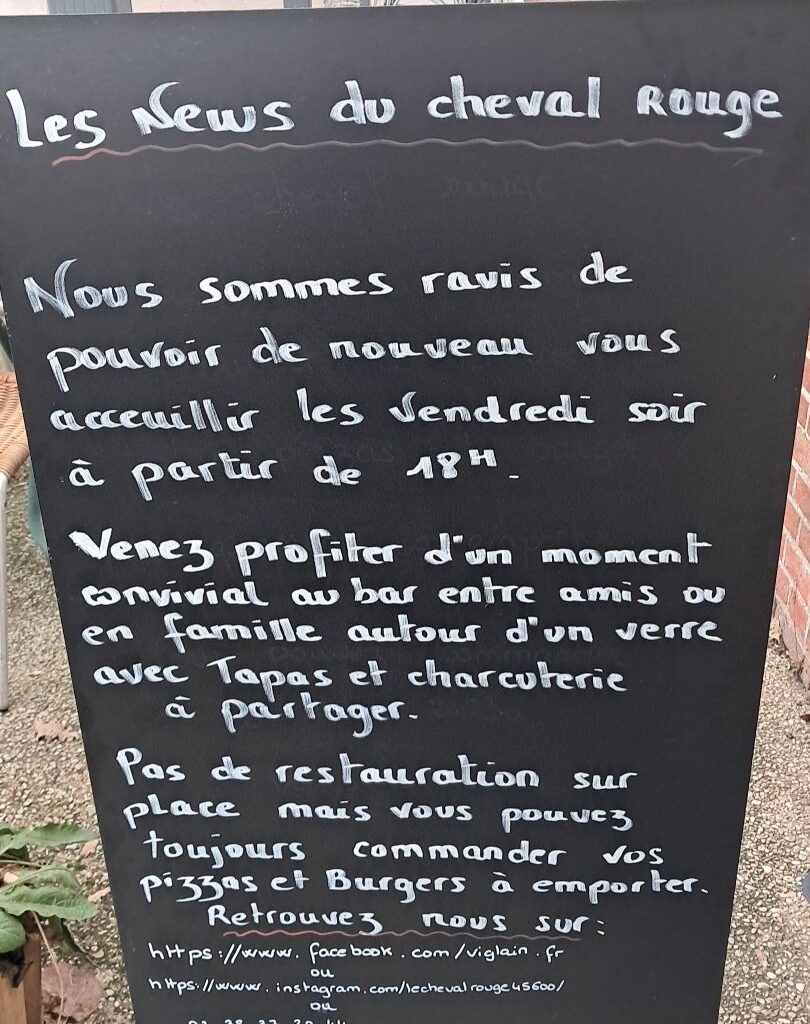 Les News du cheval Rouge
Nous sommes ravis de
pouvoir de nouveau vous
acceuillir les Vendredi soir
à partir de 18H.
Venez profiter d'un moment
convivial au bar entre amis ou
en famille autour d'un verre
avec Tapas et charcuterie
à partager.
Pas de restauration sur
place mais vous pouvez
toujours commander vos
pizzas et Burgers à emporter.
Retrouvez nous sur:
https://www.facebook.com/viglain.fr
ou
https://www.instagram.com/lechevalrouge45600/
ou